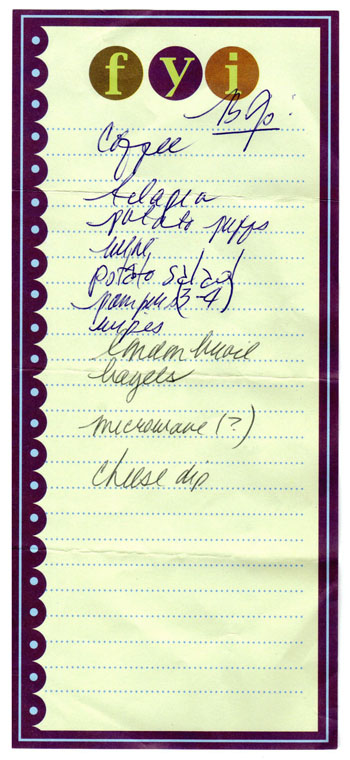 fyi
BJs:
Coffee
tilapia
potato puffs
wipes
potato salad
pampers (3-4)
wipes
london broil
bagels
microwave (?)
cheese dip